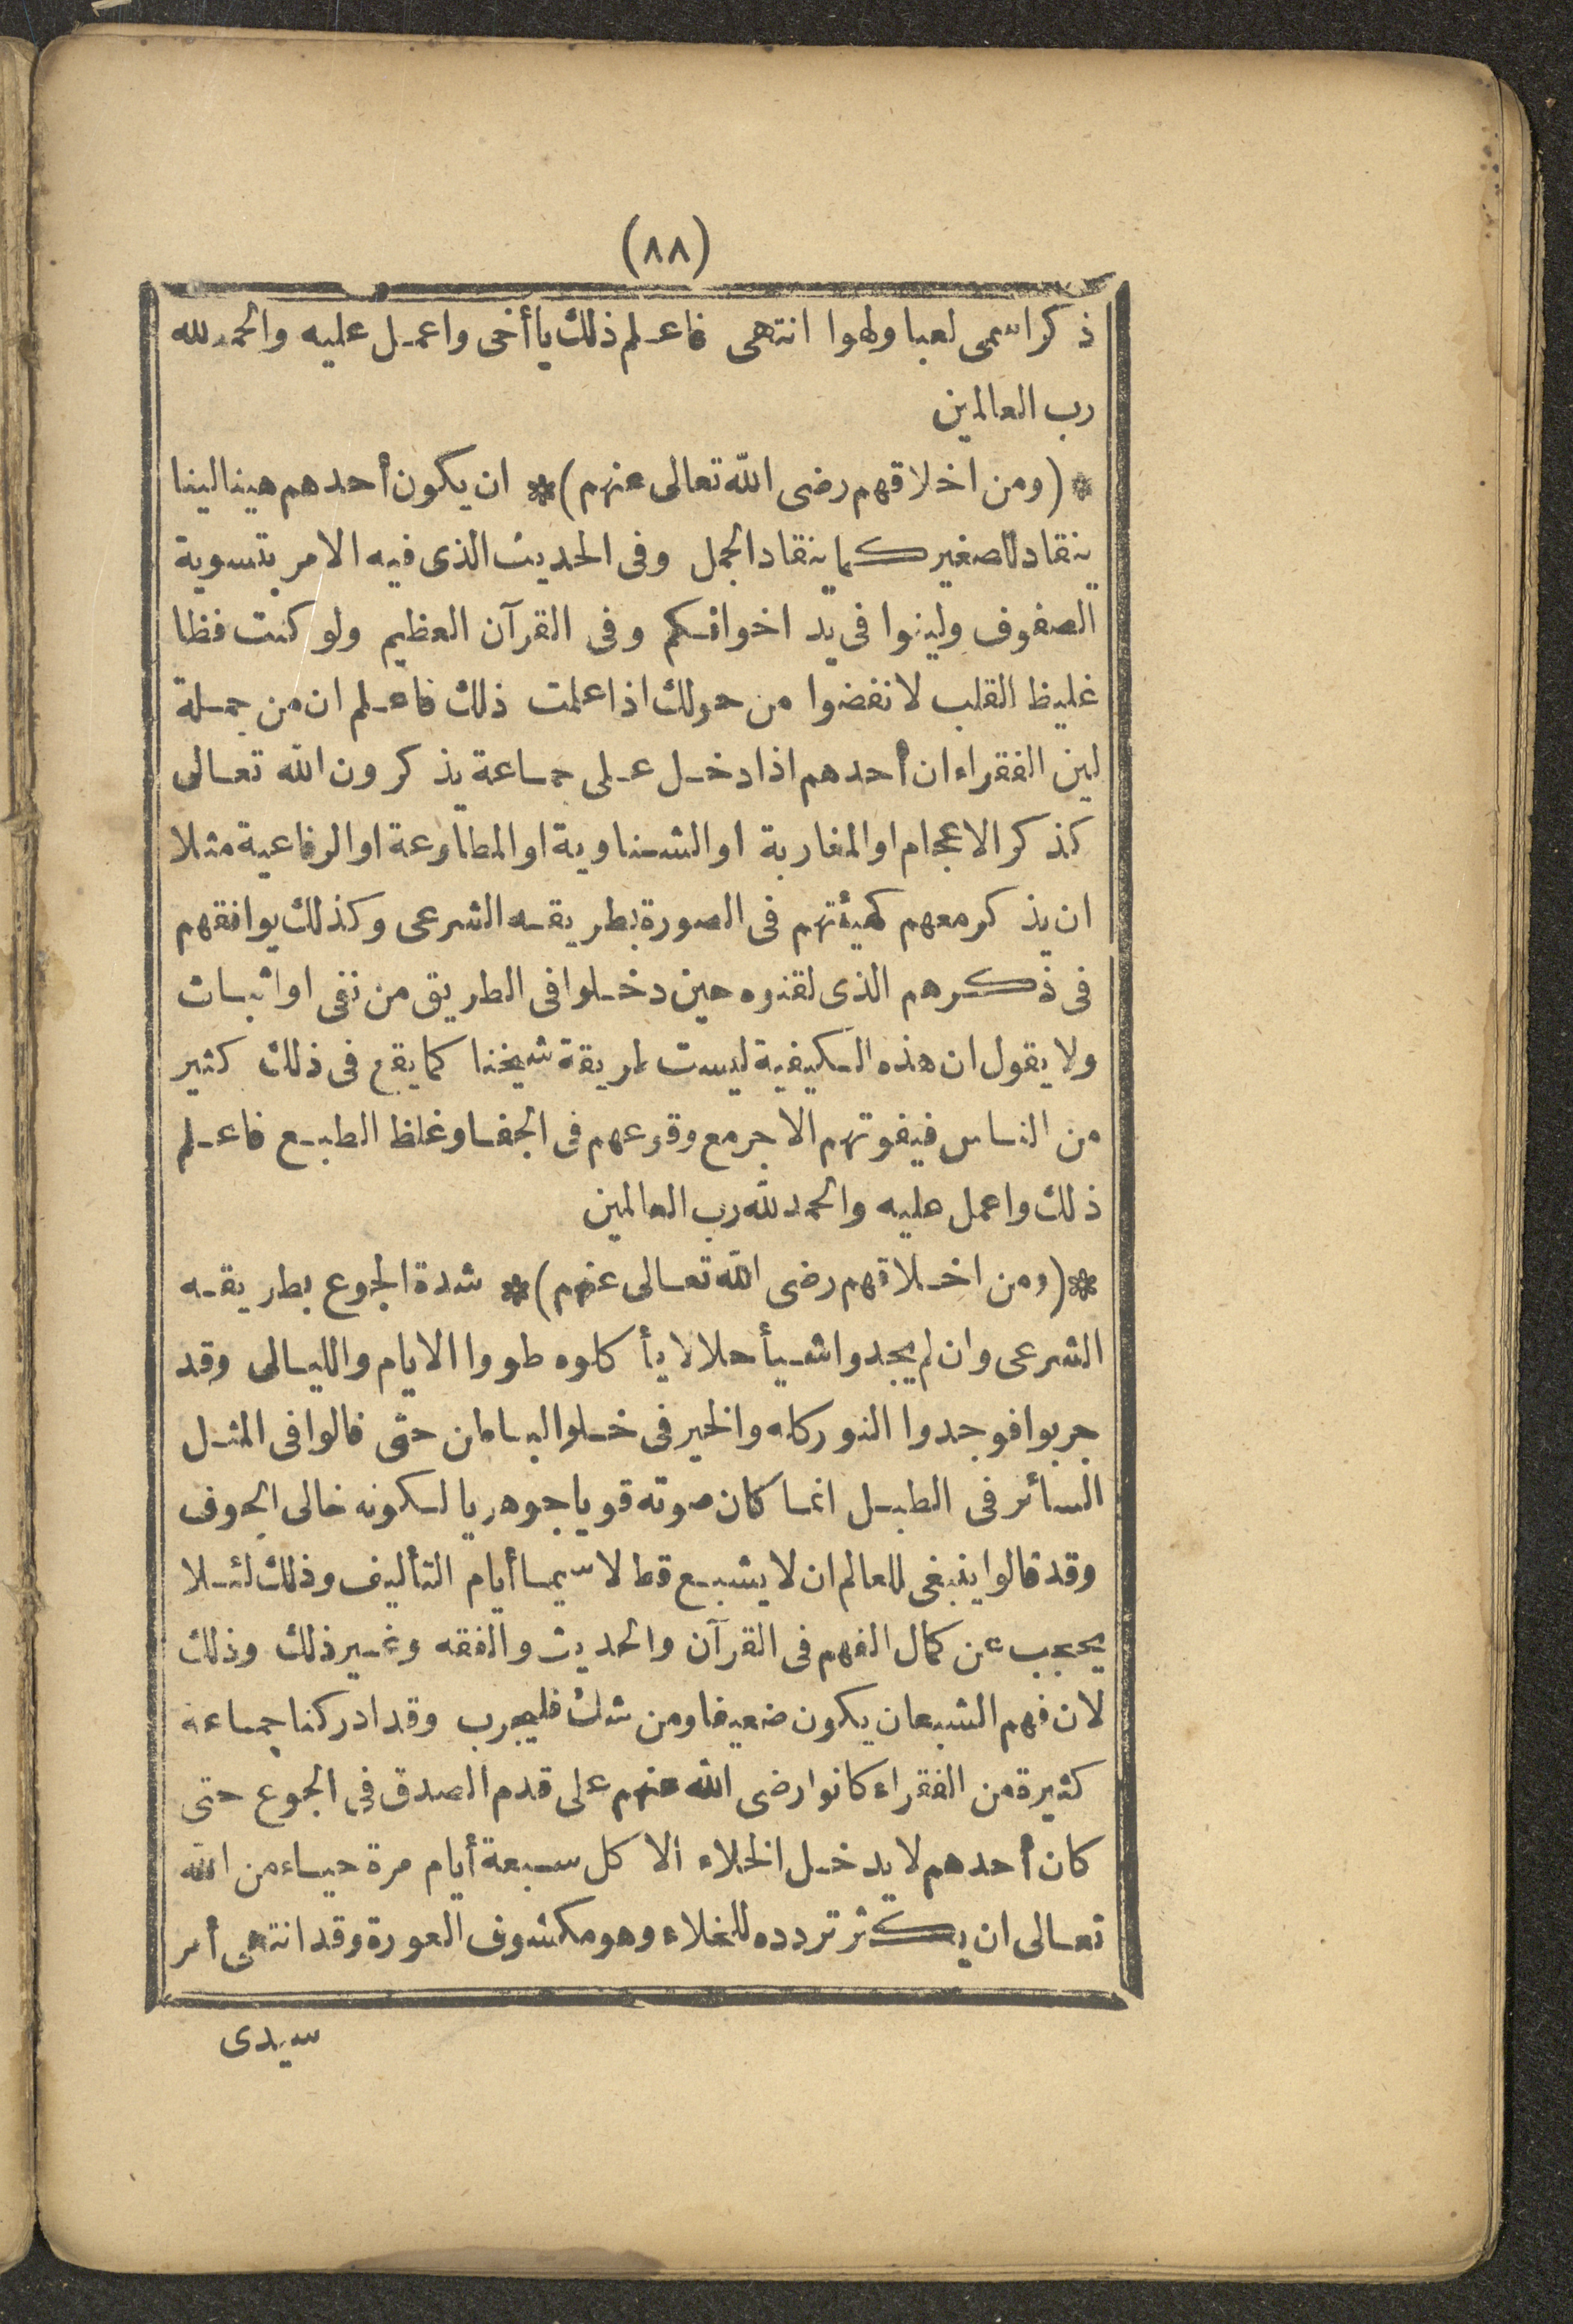 (٨٨)
ذكرا سمى لعبا ولهوا انتهى فاعلم ذلك يا أخى واعمل عليه والحمد لله
رب العالمين
* (ومن اخلاقهم رضى الله تعالى عنهم) * ان يكون أحدهم هينا لينا
ينقاد للصغير كما ينقاد الجمل وفى الحديث الذى فيه الامر بتسوية
الصفوف ولينوا فى يد اخوانكم وفى القرآن العظيم ولو كنت فظا
غليظ القلب لانفضوا من حولك اذا علمت ذلك فاعلم ان من جملة
لين الفقراء ان أحدهم اذا دخل على جماعة يذكرون الله تعالى
كذكر الاعجام او المغاربة او الشناوية او المطاوعة او الرفاعية مثلا
ان يذكر معهم كهيئتهم فى الصورة بطريقه الشرعى وكذلك يوافقهم
فى ذكرهم الذى لقنوه حين دخلوا فى الطريق من نفى او اثبات
ولا يقول ان هذه الكيفية ليست طريقة شيخنا كما يقع فى ذلك كثير
من الناس فيفوتهم الاجر مع وقوعهم فى الجفا وغلظ الطبع فاعلم
ذلك واعمل عليه والحمد لله رب العالمين
* (ومن اخلاقهم رضى الله تعالى عنهم) * شدة الجوع بطريقه
الشرعى وان لم يجدوا شيأ حلالا يأكلوه طووا الايام والليالى وقد
جربوا فوجدوا النور كله والخير فى خلو الباطن حتى قالوا فى المثل
السائر فى الطبل انما كان صوته قويا جوهريا لكونه خالى الجوف
وقد قالوا ينبغى للعالم ان لا يشبع قط لا سيما أيام التأليف وذلك لئلا
يحجب عن كمال الفهم فى القرآن والحديث والفقه وغير ذلك وذلك
لان فهم الشبعان يكون ضعيفا ومن شك فليجرب وقد ادركنا جماعة
كثيرة من الفقراء كانوا رضى الله عنهم على قدم الصدق فى الجوع حتى
كان أحدهم لا يدخل الخلاء الا كل سبعة أيام مرة حياء من الله
تعالى ان يكثر تردده للخلاء وهو مكشوف العورة وقد انتهى أمر
سيدى